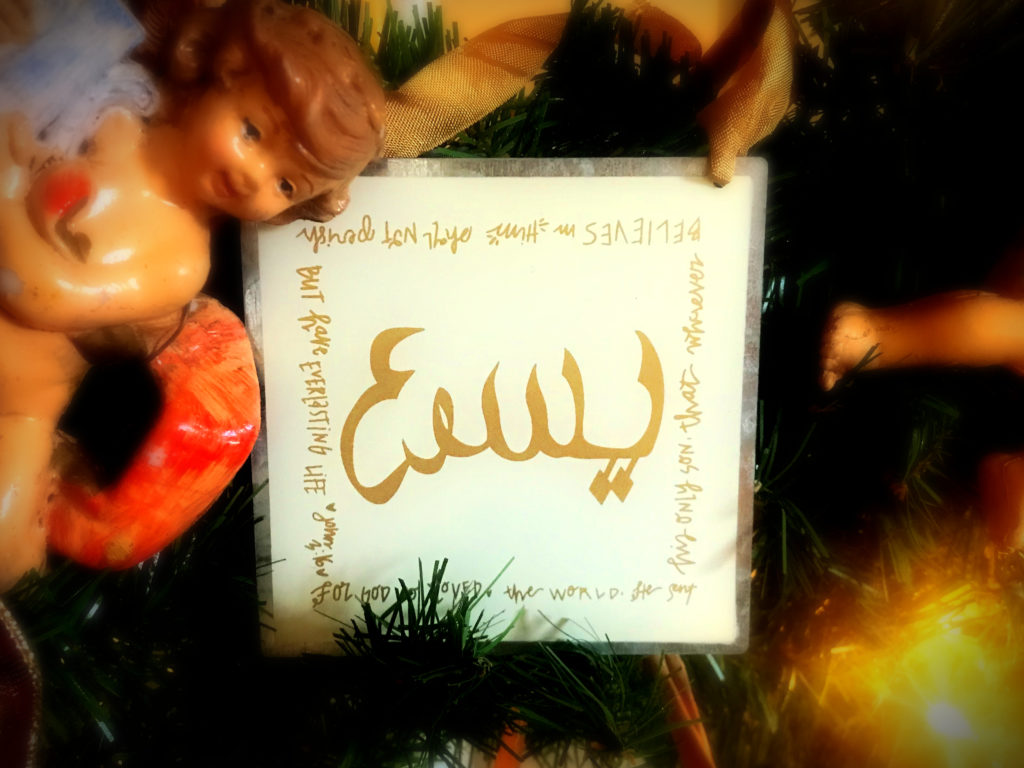 يسوع
FOR GOD so LOVED. the WORLD. He sent
his ONLY SON. that whoever
BELIEVES in Him shall NOT perish
BUT have EVERLASTING LIFE